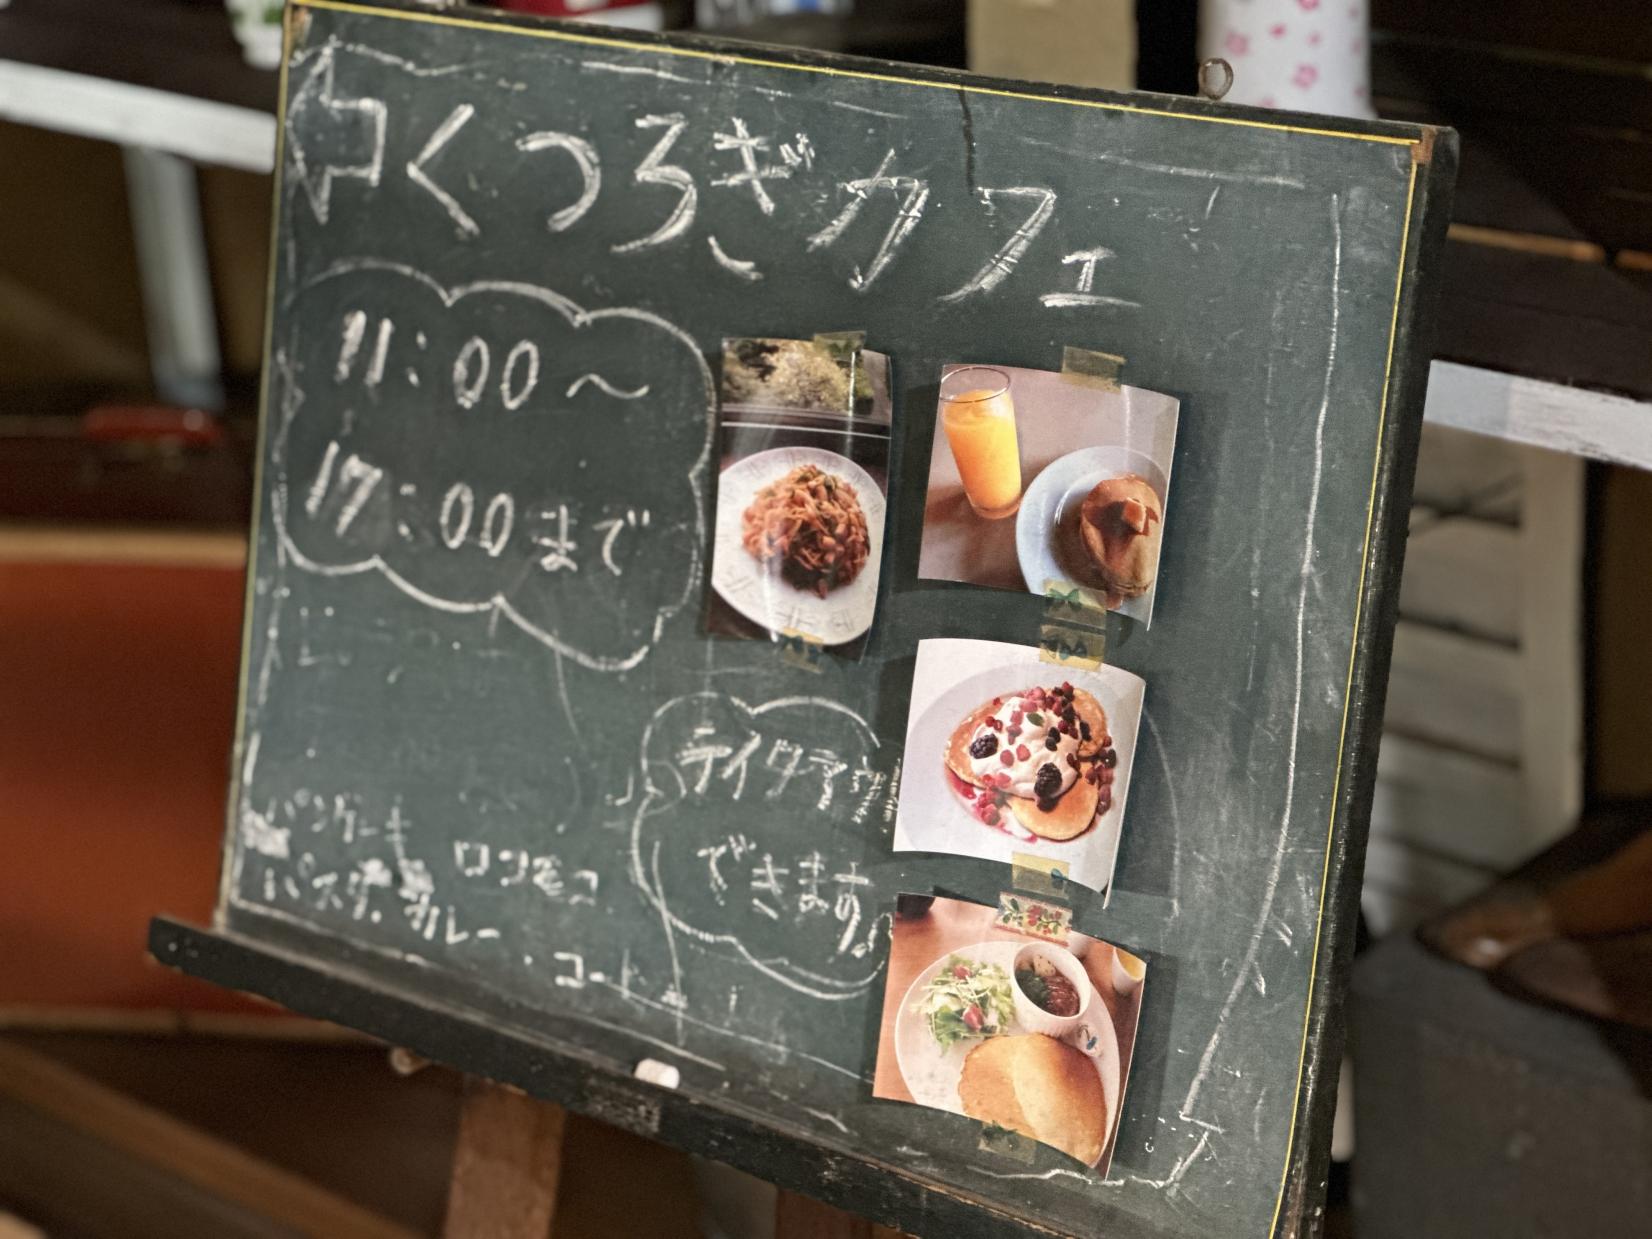 くつろぎカフェ
11:00〜
17:00まで
テイクアウト
できます
パンケーキ
パスタ. カレー
ロコモコ
・コーヒー